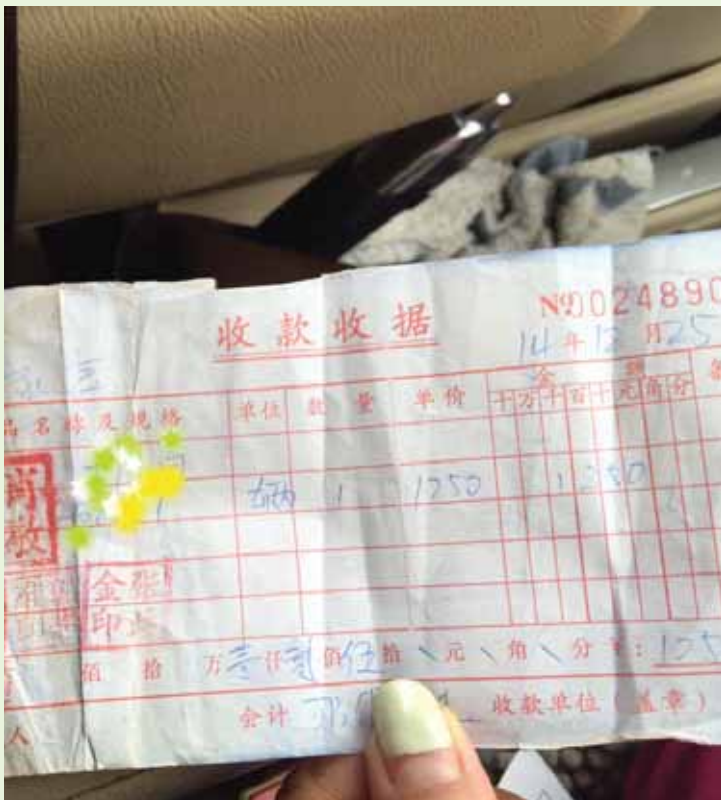 收款收据
№0024890
14年12月25
品名称及规格 单位 数量 单价 金额
十万千百十元角分
辆 1 1250 1250
肖敬
金张
印
佰拾万壹仟贰佰伍拾\元\角\分¥:125
人 会计 收款单位(盖章)